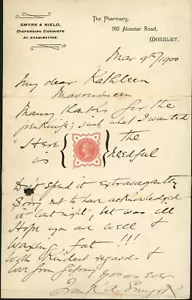 SMYTH & NIELD,
DISPENSING CHEMISTS
BY EXAMINATION.
The Pharmacy,
180 Alcester Road,
MOSELEY,
Mar 9th 1900
My dear Kathleen
Mavourneen
Many thanks for the
just what I wanted
Here is the needful
Don't spend it extravagantly
Sorry not to have acknowledged
it last night, but was ill
Hope you are well &
waxing fat !!!
With kindest regards &
love from
Yours Ever
Frank A